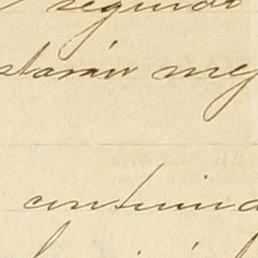 segundo
starán mej
continua